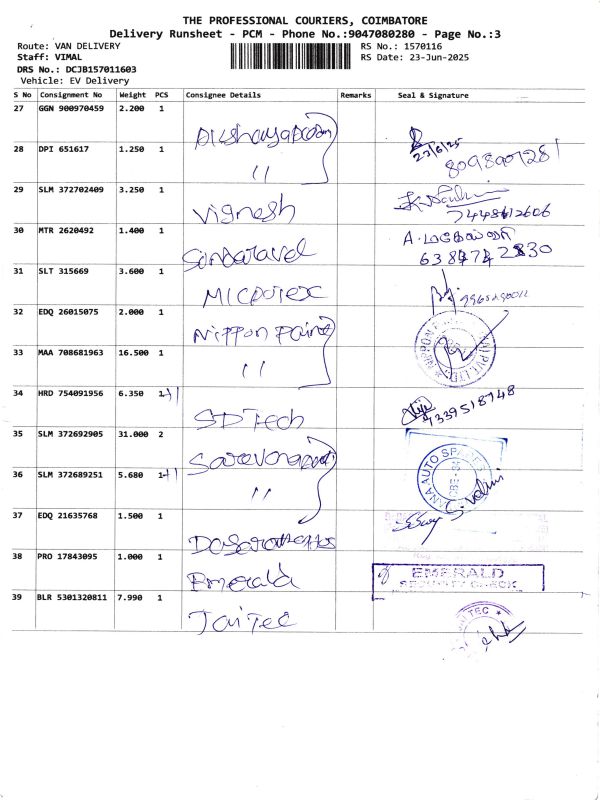 THE PROFESSIONAL COURIERS, COIMBATORE
Delivery Runsheet - PCM - Phone No.:9047080280 - Page No.:3
Route: VAN DELIVERY RS No.: 1570116
Staff: VIMAL RS Date: 23-Jun-2025
DRS No.: DCJB157011603
Vehicle: EV Delivery
S No Consignment No Weight PCS Consignee Details Remarks Seal & Signature
27 GGN 900970459 2.200 1
23/6/25
28 DPI 651617 1.250 1 〃
29 SLM 372702409 3.250 1 Vignesh
7448612606
30 MTR 2620492 1.400 1 Sundaravel A.
31 SLT 315669 3.600 1 Microtex
32 EDQ 26015075 2.000 1 Nippon Paint
33 MAA 708681963 16.500 1 〃
34 HRD 754091956 6.350 1+1 SP Tech
9339518748
35 SLM 372692905 31.000 2
ANA AUTO SPARES
36 SLM 372689251 5.680 1+1 〃
37 EDQ 21635768 1.500 1
38 PRO 17843095 1.000 1 Emerald
EMERALD
SECURITY CHECK
39 BLR 5301320811 7.990 1 Jai Tec
TEC